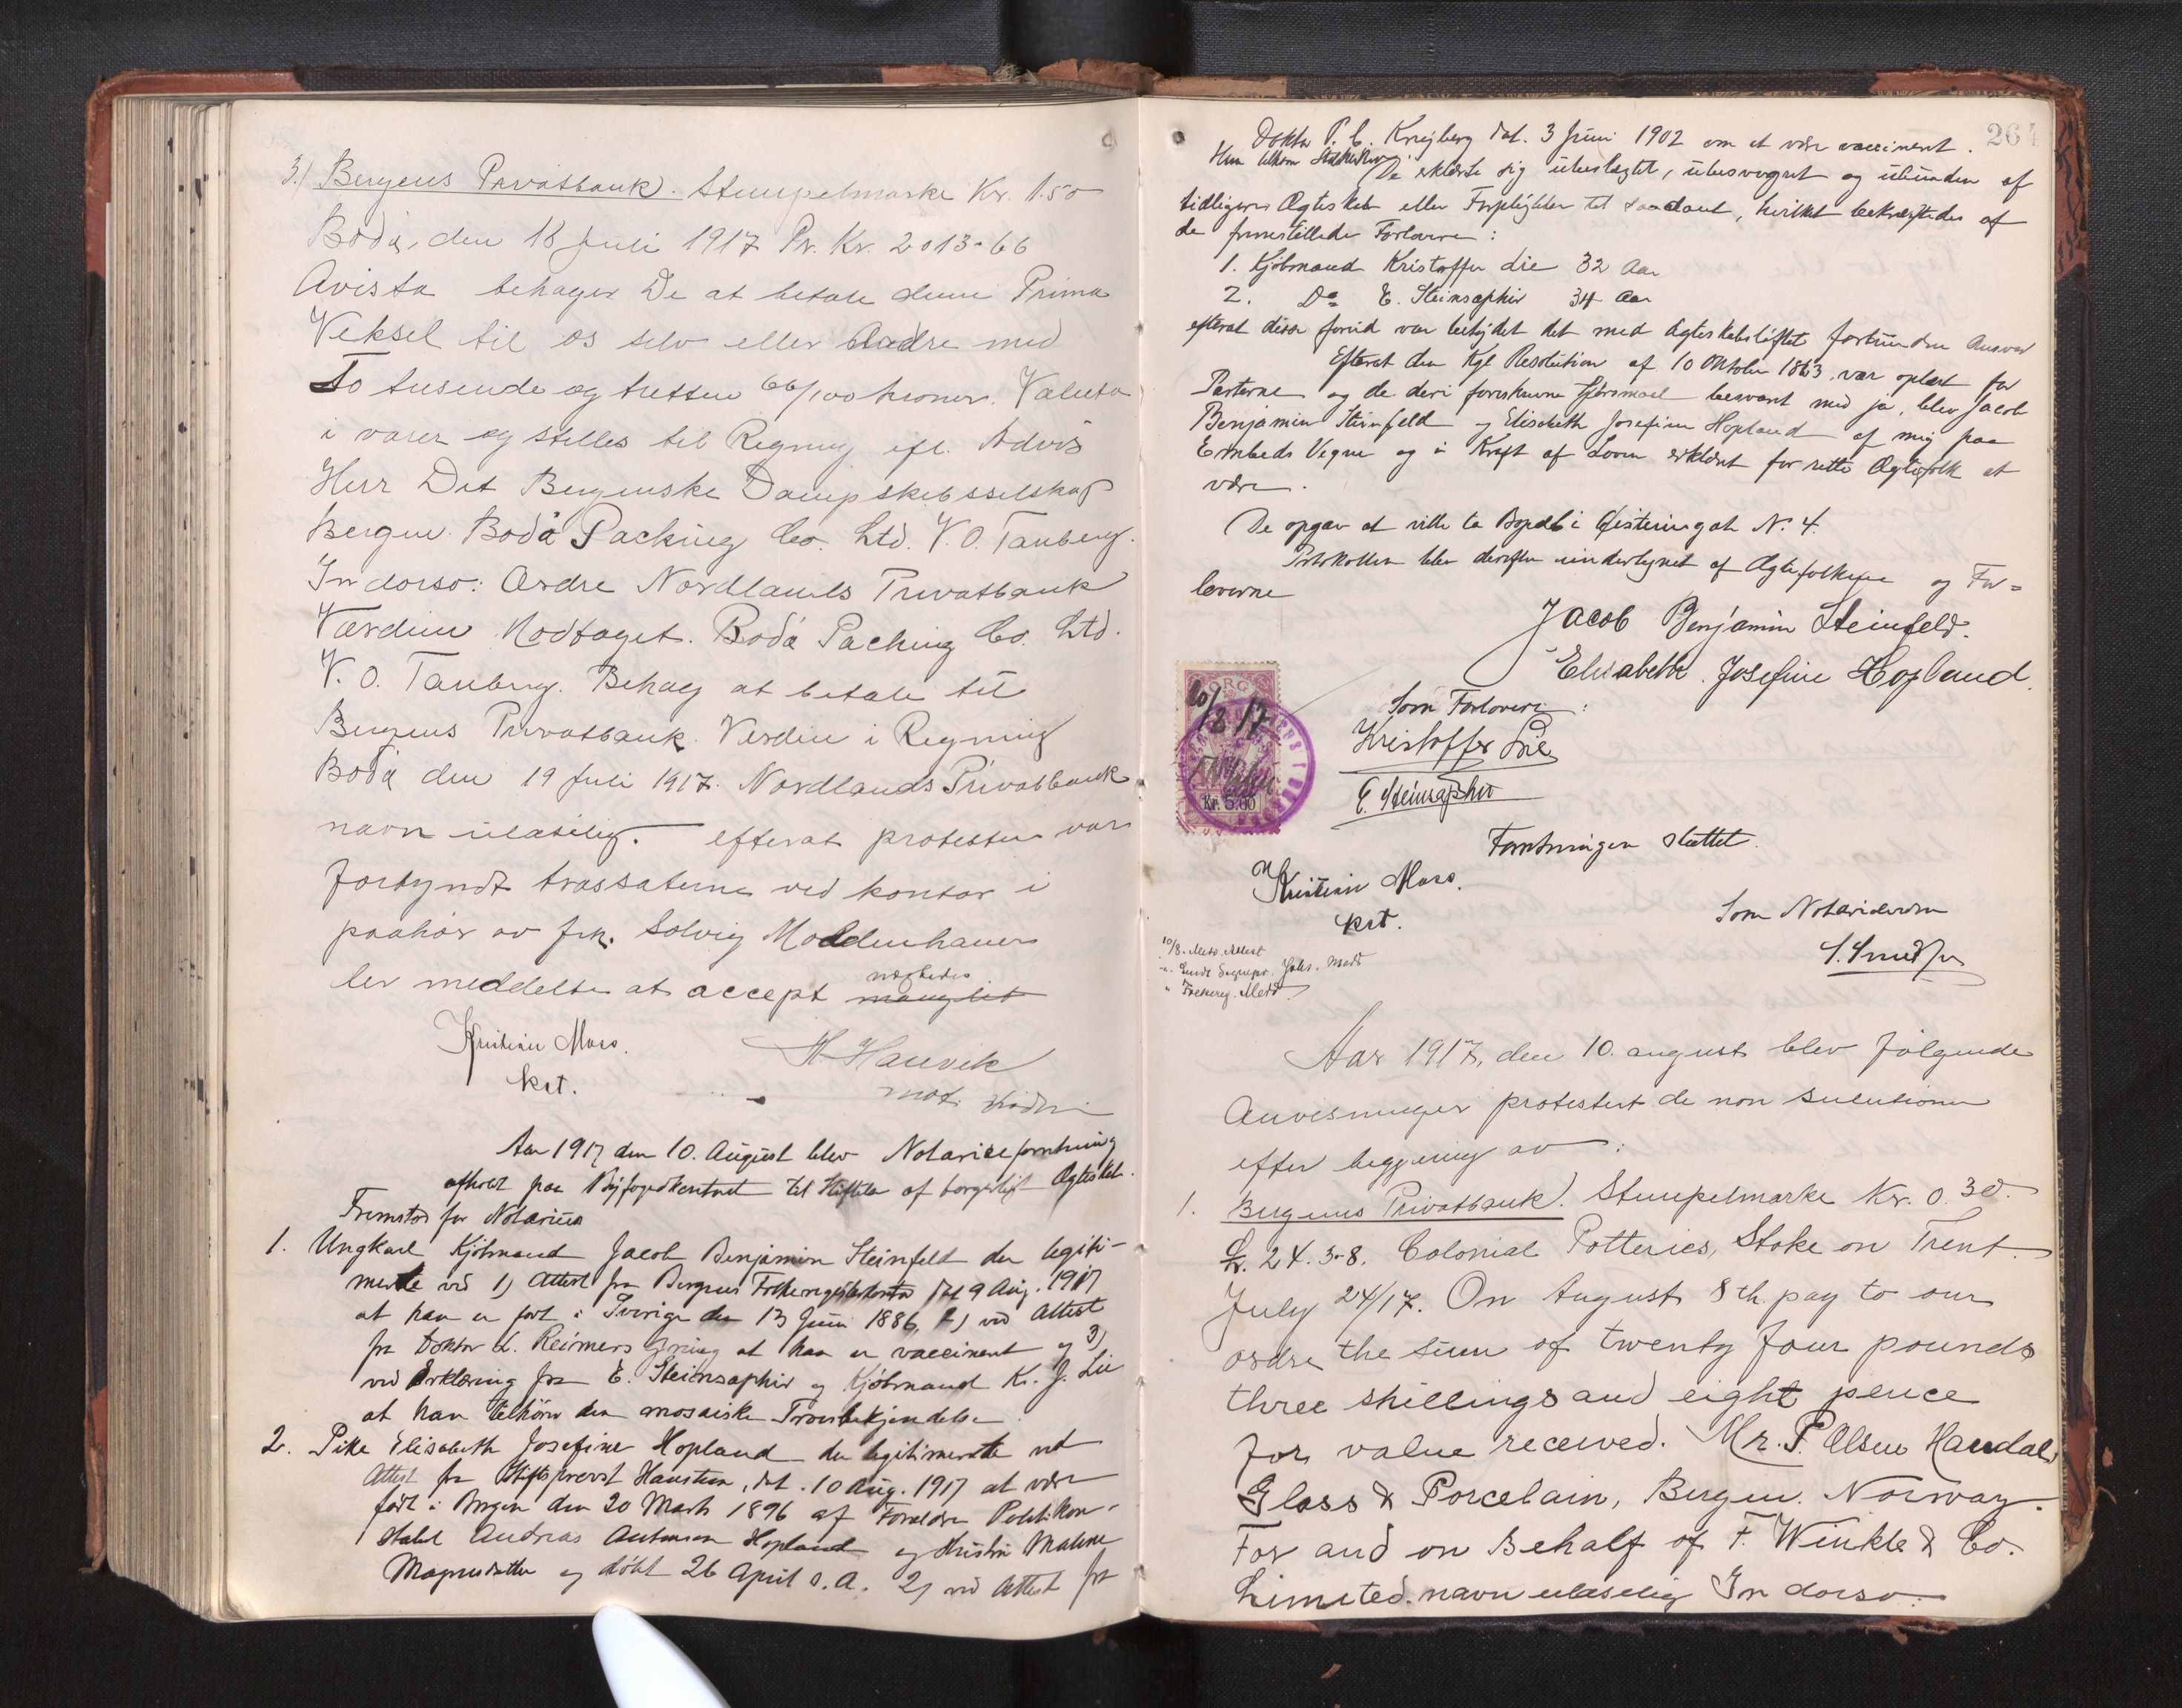 3.) Bergens Privatbank. Stempelmarke Kr. 1.50
Bodø, den 18 Juli 1917 Pr. Kr. 2013-66
Avista behager De at betale denne Prima
Veksel til os selv eller Ordre med
To tusende og tretten 66/100 kroner. Valuta
i varer og stilles til Regning efl. Advis
Herr Det Bergenske Dampskibsselskap
Bergen. Bodø Packing Co. Ltd. V. O. Tauberg.
In dorso: Ordre Nordlands Privatbank
Værdien Modtaget. Bodø Packing Co. Ltd.
V. O. Tauberg. Behag at betale til
Bergens Privatbank. Verdien i Regning
Bodø den 19 Juli 1917. Nordlands Privatbank
navn ulæselig. efterat protesten var
forkyndt trassaterne ved kontor i
paahør av frk. Solveig Moldenhauer
blev meddelt at accept nægtedes manglet
Kristian Mass.
kst.
H. Hauvik
not.
Aar 1917 den 10. August blev Notarialforretning
afholdt paa Byfogedkontoret til Stiftelse af borgerligt Ægteskab.
Fremstod for Notarius
1. Ungkarl Kjøbmand Jacob Benjamin Steinfeld der legiti-
merte ved 1) Attest fra Bergens Folkeregisterkontor dat 9 Aug. 1917
at han er født i Sverige den 13 Juni 1886, 2) ved Attest
fra Doktor L. Reimers Gring at han er vaccineret og 3)
ved Erklæring fra E. Steinsaphir og Kjøbmand Kr. J. Lie
at han tilhører den mosaiske Troesbekjendelse
2. Pike Elisabeth Josefine Hopland der legitimerte ved
Attest fra Stiftsprovst Hanstein, dat. 10 Aug. 1917 at være
født i Bergen den 20 Marts 1896 af Forældre Politikon-
stabel Andreas Antonsen Hopland og Kristin Malene
Magnusdatter og døbt 26 April s. A. 2) ved Attest fra
264
Doktor P. C. Krejberg dat. 3 Juni 1902 om at være vaccineret.
De erklærte sig ubeslægtet, ubesvogret og ubunden af
tidligere Ægteskab eller Forpligtelser til saadant, hvilket bekræftedes af
de fremstillede Forlovere:
1. Kjøbmand Kristoffer Lie 32 Aar
2. Do E. Steinsaphir 34 Aar
efterat disse forud var betydet det med Ægteskabsløftet forbundne Ansvar
Efterat den Kgl Resolution af 10 Oktober 1863 var oplæst for
Parterne og de deri foreskrevne Spørsmaal besvaret med ja, blev Jacob
Benjamin Steinfeld og Elisabeth Josefine Hopland af mig paa
Embeds Vegne og i Kraft af Loven erklæret for rette Ægtefolk at
være.
De opgav at ville ta Bopæl i Øisteinsgate N. 4.
Protokollen blev derefter undertegnet af Ægtefolkene og For=
loverne
Jacob Benjamin Steinfeld.
Elisabeth Josefine Hopland.
Som Forlovere:
Kristoffer Lie
E. Steinsaphir
10/8 17
Kr. 5.00
Forretningen sluttet.
Kristian Mass.
kst.
Som Notarius
10/8. Medd. Attest
Folkereg. Medd.
Aar 1917, den 10. august blev følgende
Anvisninger protestert de non solutione
efter begjæring av:
1. Bergens Privatbank. Stempelmarke Kr. 0.30.
£. 24.3-8. Colonial Potteries, Stoke on Trent.
July 24/17. On August 8th pay to our
order the sum of twenty four pounds
three shillings and eight pence
for value received. Mr. P. Olsen Handal
Glass & Porcelain, Bergen. Norway.
For and on Behalf of F. Winkle & Co.
Limited. navn ulæselig In dorso: